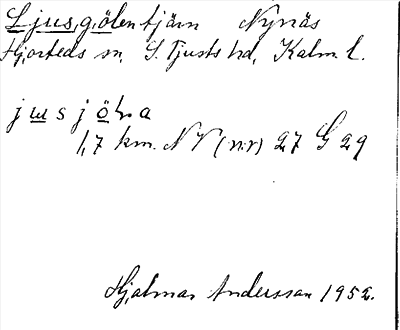 Ljusgölen tjärn Nynäs
Hjorteds sn, S. Tjusts hd, Kalm. l.
jusjöṇa
1,7 km. NV (n:r) 27 G 29
Hjalmar Andersson 1952.